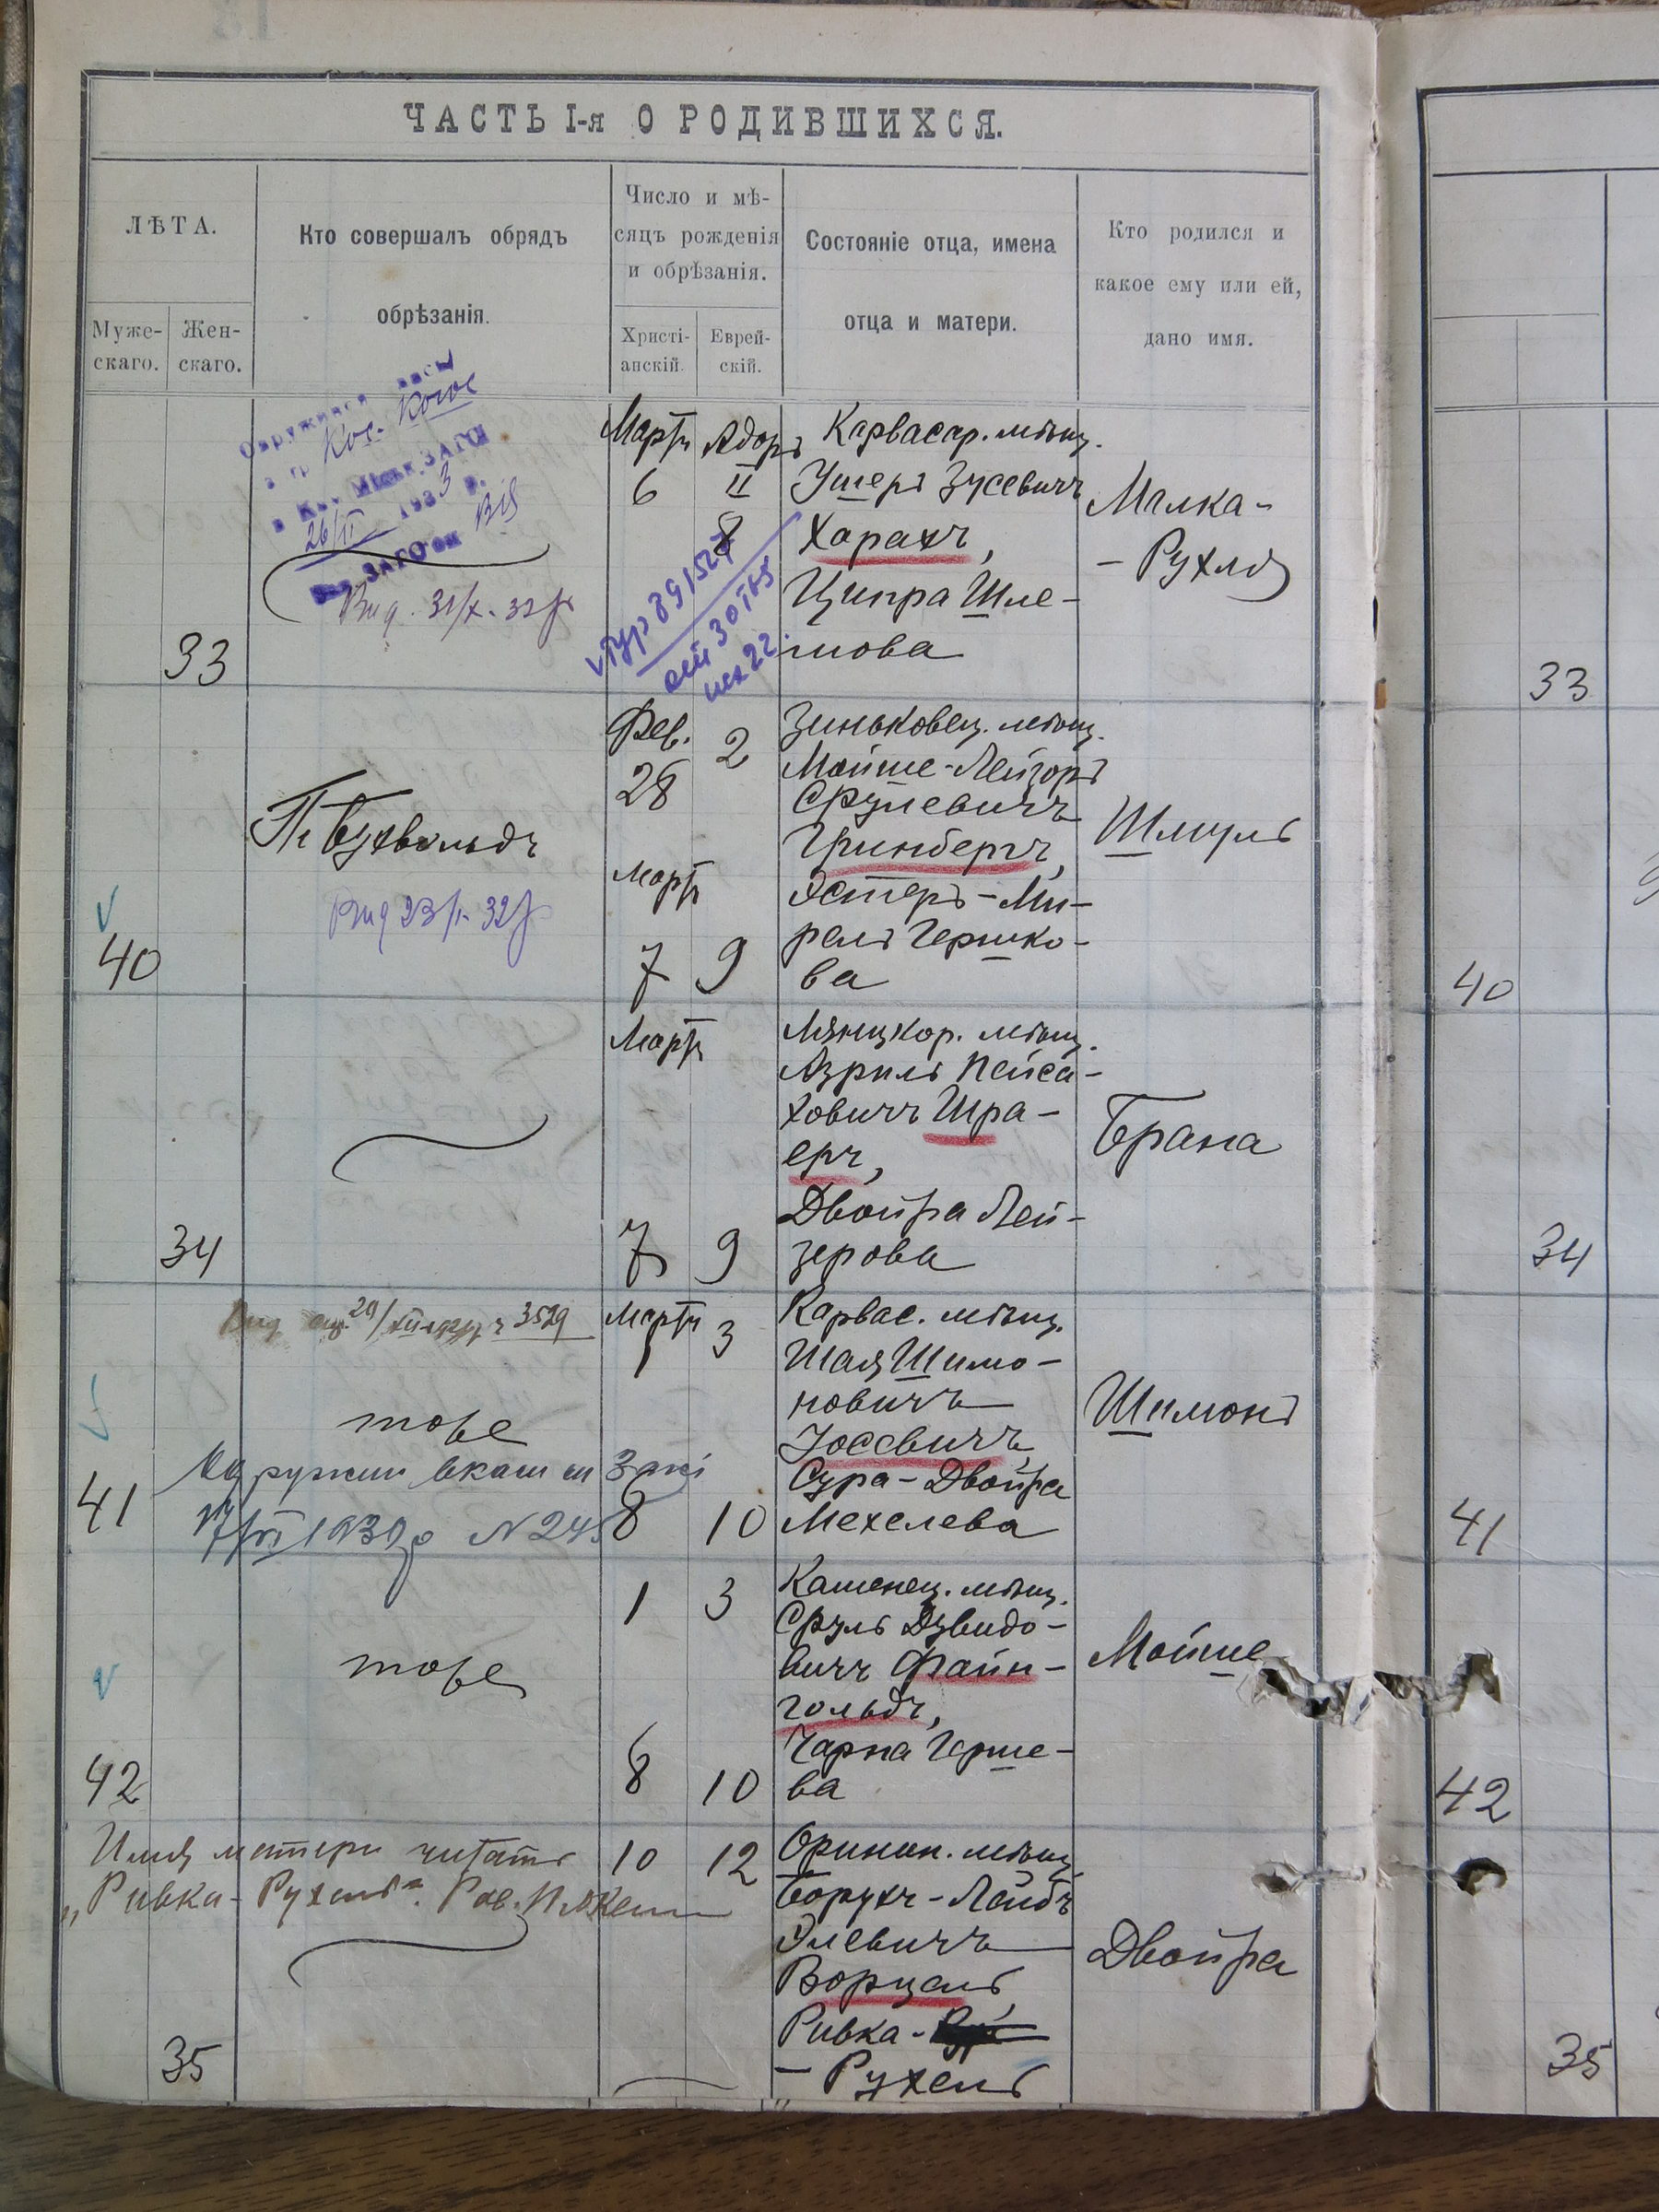 ЧАСТЬ I-я О РОДИВШИХСЯ.
ЛѢТА.
Муже-
скаго.
Жен-
скаго.
Кто совершалъ обрядъ
обрѣзанія.
Число и мѣ-
сяцъ рожденія
и обрѣзанія.
Христі-
анскій.
Еврей-
скій.
Состояніе отца, имена
отца и матери.
Кто родился и
какое ему или ей,
дано имя.
33
26/II 1933 р.
ЗАГС
Вид. 31/X. 32 р
Мартъ
6
Адаръ
II
8
391527
Карвасар. мѣщ.
Ушеръ Зусевичъ
Харахъ,
Ципра Шле-
мова
Малка-
- Рухля
33
40
П. Бухвольдъ
Вид 23/I- 32 р
Фев.
28
2
Мартъ
7
9
Зиньковец. мѣщ.
Мойше-Лейзоръ
Срулевичъ
Гринбергъ,
Эстеръ-Ми-
рель Гершко-
ва
Шмуль
40
34
Мартъ
7
9
Лянцкор. мѣщ.
Азриль Пейса-
ховичъ Шра-
еръ,
Двойра Лей-
зерова
Брана
34
3529
41
тоже
1930 р N 245
Мартъ
1
3
8
10
Карвас. мѣщ.
Шая Шимо-
новичъ
Іосевичъ,
Сура-Двойра
Мехелева
Шимонъ
41
42
тоже
1
3
8
10
Каменец. мѣщ.
Сруль Дувидо-
вичъ Файн-
гольдъ,
Чарна Герше-
ва
Мойше
42
Имя матери читать
„Ривка-Рухель“. Рав.
35
10
12
Оринин. мѣщ.
Борухъ-Лейбъ
Элевичъ
Ворцель,
Ривка-
- Рухель
Двойра
35